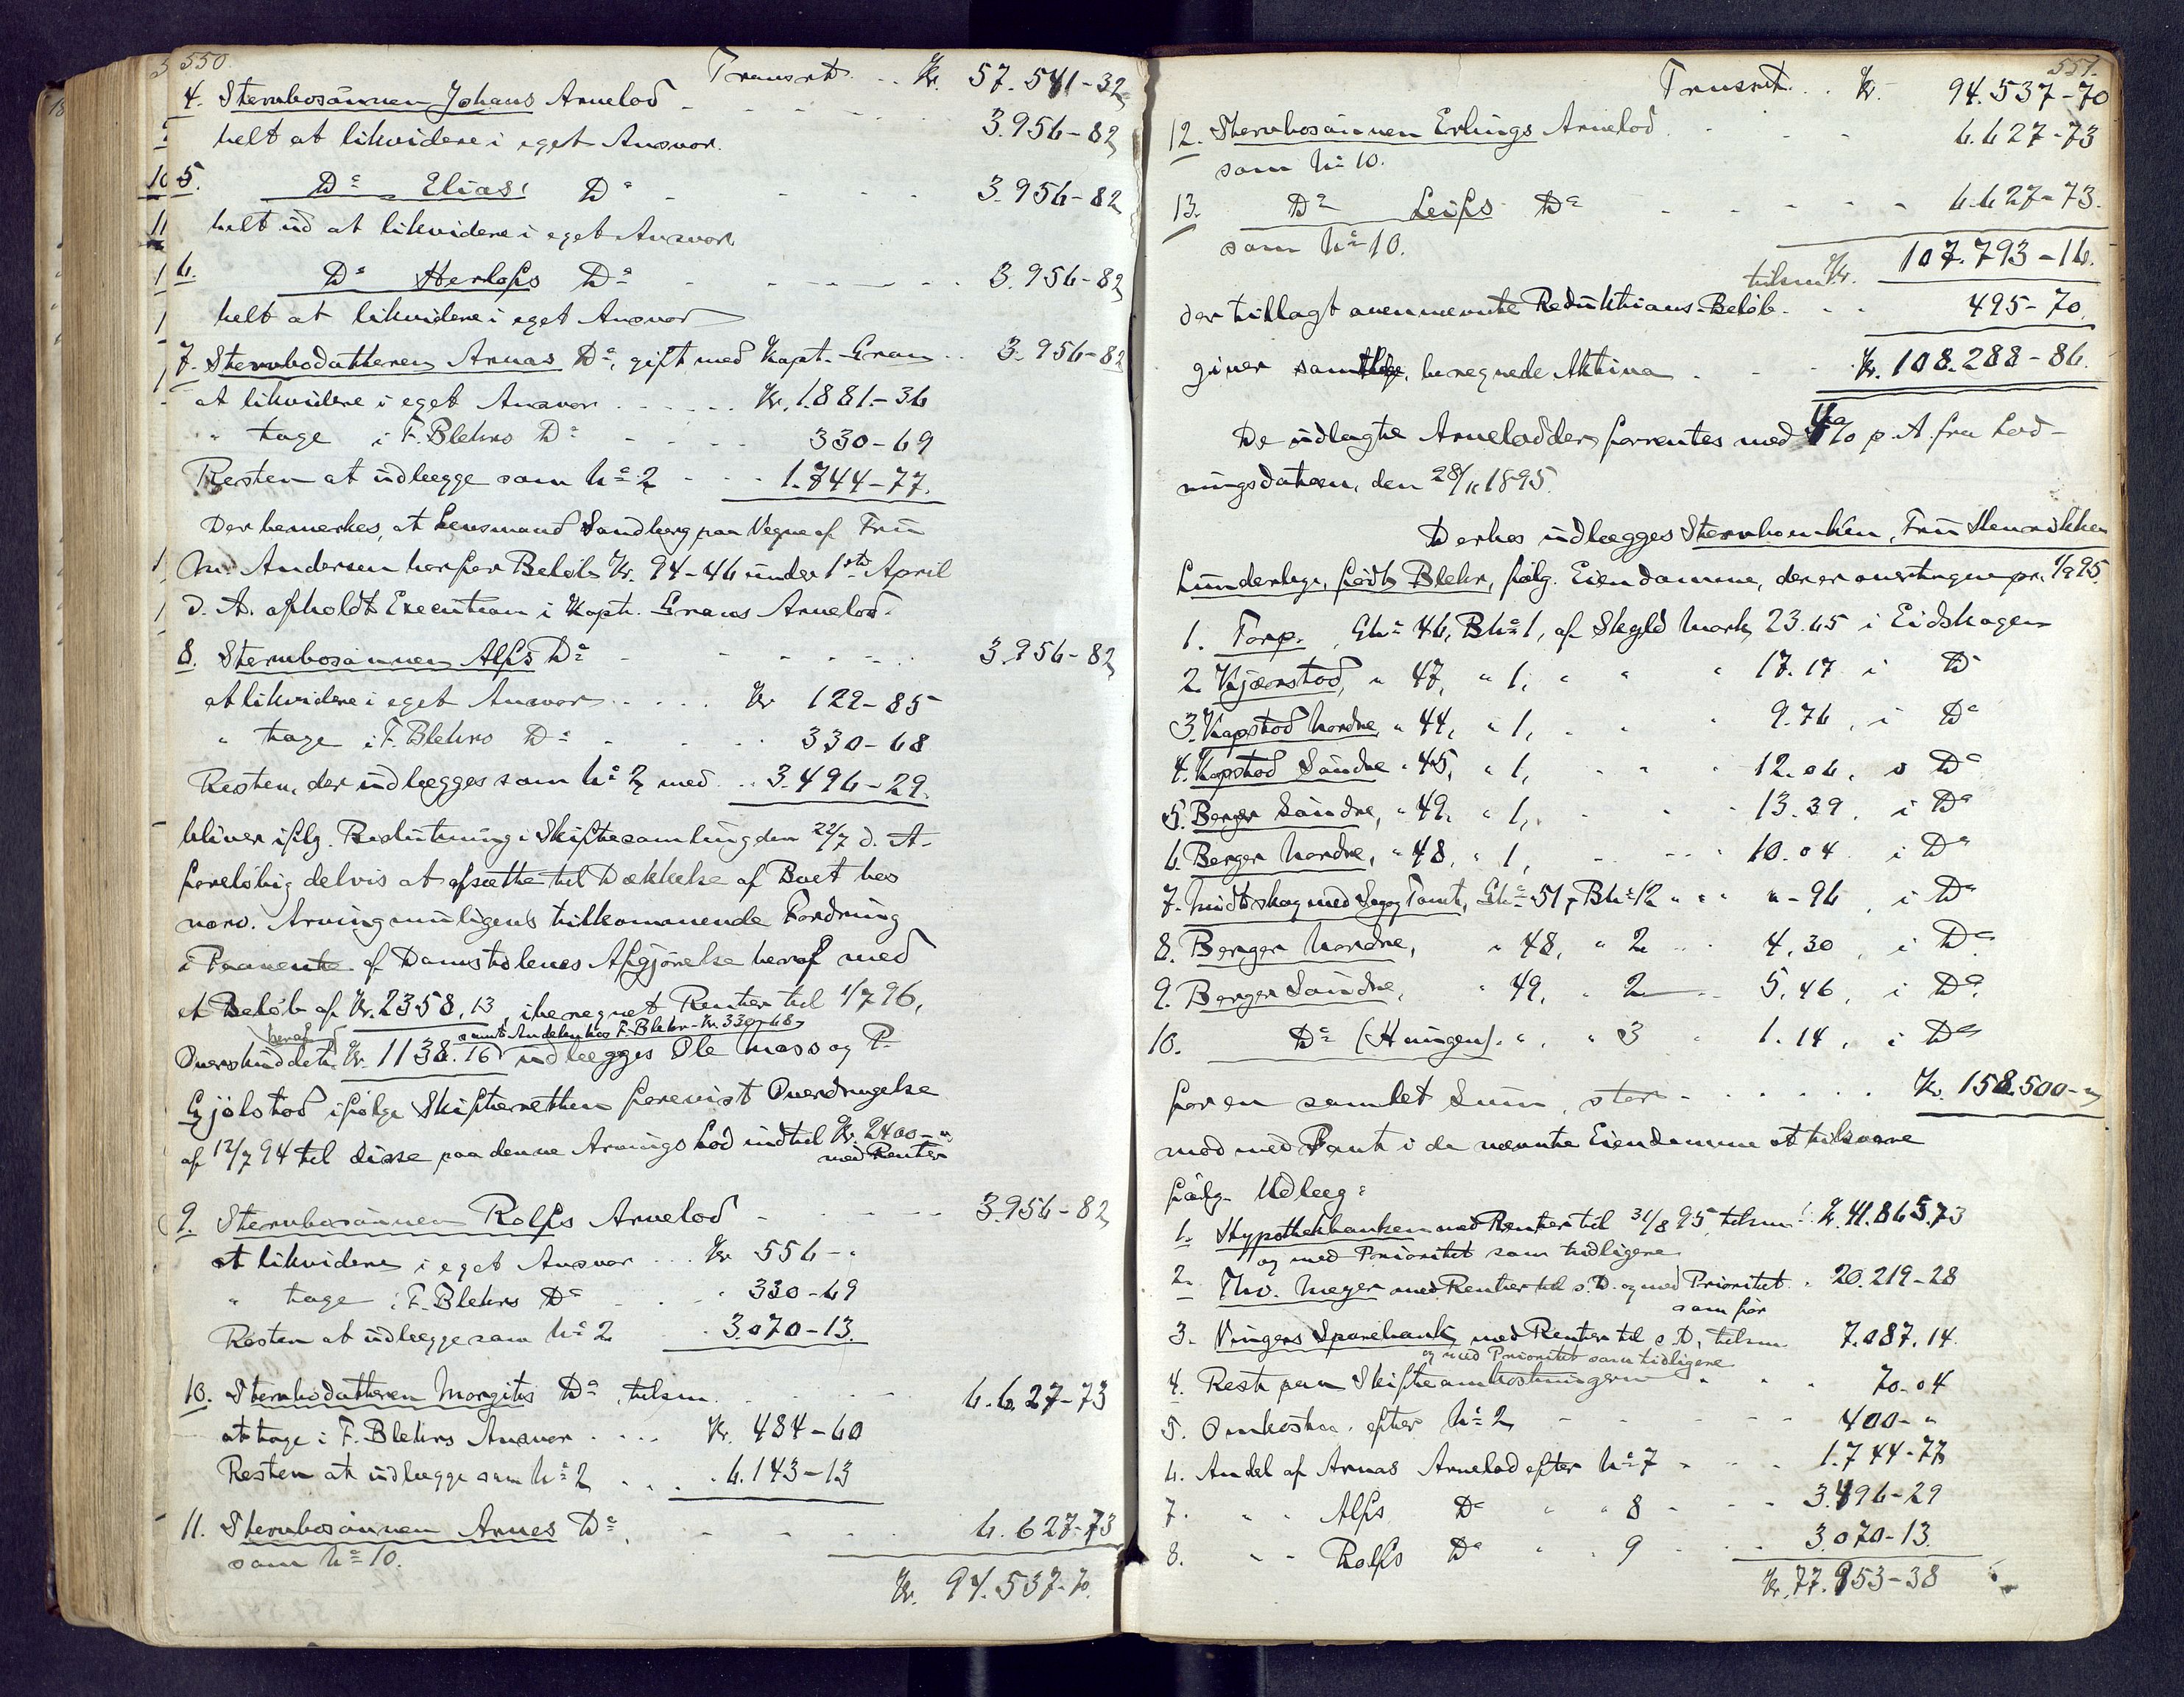 550.
Transrt. . . Kr. 57.541-32
4. Stervbosönnen Johans Arvelod - 3.956-82
helt at likvidere i eget Ansvar.
5. Do Elias' Do - 3.956-82
helt ud at likvidere i eget Ansvar
6. Do Herlofs Do - 3.956-82
helt at likvidere i eget Ansvar
7. Stervbodatteren Arnas Do, gift med Kapt. Gran . . 3.956-82
at likvidere i eget Ansvar . . . . . Kr. 1.881.-36
" tage i F. Blehrs Do - - - 330-69
Resten at udlægge som No 2 - - - 1.744-77.
Der bemerkes, at Lensmand Sandberg paa Vegne af Fru
M. Andersen har for Beløb Kr. 94-46 under 1ste April
d. A. afholdt Execution i Kapt. Grans Arvelod.
8. Stervbosönnen Alfs Do - 3.956-82
at likvidere i eget Ansvar . . . . Kr 122-85
" tage i F. Blehrs Do - - - 330-68
Resten, der udlægges som No 2 med . . 3.496-29.
bliver iflg. Beslutning i Skiftesamling den 22/7 d. A.
foreløbig delvis at afsætte til Dækkelse af Boet hos
næv. Arving muligens tilkommende Fordring
i Paavente af Domstolenes Afgjørelse heraf med
et Beløb af Kr. 2358,13, iberegnet Renter til 1/7 96,
heraf samt Andelen hos F. Blehr - Kr. 330-68
Overskuddet Kr. 1138.16 udlægges Ole Moss og P.
Gjölstad ifölge Skifteretten forevist Overdragelse
af 12/7 94 til disse paa denne Arvings Lod indtil Kr. 2400-"
med Renter
9. Stervbosönnen Rolfs Arvelod - 3.956-82
at likvidere i eget Ansvar . . . Kr 556-"
" tage i F. Blehrs Do - - 330-69
Resten at udlægge som No 2 - 3.070-13.
10. Stervbodatteren Margits Do, tilsm. - 6.627-73
at tage i F. Blehrs Ansvar . . . . Kr. 484-60
Resten at udlægge som No 2 . . . 6.143-13
11. Stervbosönnen Arnes Do, - 6.627-73
som No 10.
Kr. 94.537-70.
551.
Transrt. . . Kr. 94.537-70
12. Stervbosönnen Erlings Arvelod. - 6.627-73
som No 10.
13. Do Leifs Do - 6.627-73.
som No 10.
tilsm. Kr. 107.793-16.
der tillagt ovennævnte Reduktions-Beløb. . . 495-70.
giver samtlige beregnede Aktiva - Kr. 108.288-86.
De udlagte Arvelodder forrentes med 4% p. A. fra Lod-
ningsdatoen, den 28/11 1895.
Derhos udlægges Stervboenken, Fru Henrikke
Lunderbye, født Blehr, følg. Eiendomme, der er overtagne pr. 1/9 95.
1. Torp. Gno 46, Bno 1, af Skyld Mark 23.65 i Eidskogen
2. Kjærstad, " 47, " 1, " " " 17.17 i Do
3. Kapstad Nordre, " 44, " 1, " " 9.76, i Do
4. Kapstad Söndre " 45, " 1, " " " 12.06, i Do
5. Berger Söndre, " 49, " 1, " " 13.39, i Do
6. Berger Nordre, " 48, " 1, - - " 10.04 i Do
7. Midtskog med Sag og Tomt, Gno 51, Bno 12 " " " "-96, i Do
8. Berger Nordre, " 48, " 2 - - 4,30, i Do
9. Berger Söndre, " 49, " 2 - - 5,46, i Do
10. Do (Haugen). ", " 3 " 1.14, i Do
for en samlet Sum, stor - . . . . . . Kr. 158.500-"
mod med Pant i de nævnte Eiendomme at tilsvare
følg. Udlæg:
1. Hypothekbanken med Renter til 31/8 95, tilsm: Kr. 41.865.73
og med Prioritet som tidligere
2. Tho. Meyer med Renter til s. D. og med Prioritet . 20.219-28
som för
3. Vingers Sparebank, med Renter til s. D, tilsm. 7.087.14.
og med Prioritet som tidligere
4. Rest paa Skifteomkostningerne " " . 70-04
5. Omkostn. efter No 2 - - - - 400-"
6. Andel af Arnas Arvelod efter No 7 - - 1.744-77
7. " - Alfs Do " " 8 - - - 3.496-29
8. " - Rolfs Do " " 9 - - . 3.070-13.
Kr. 77.953-38